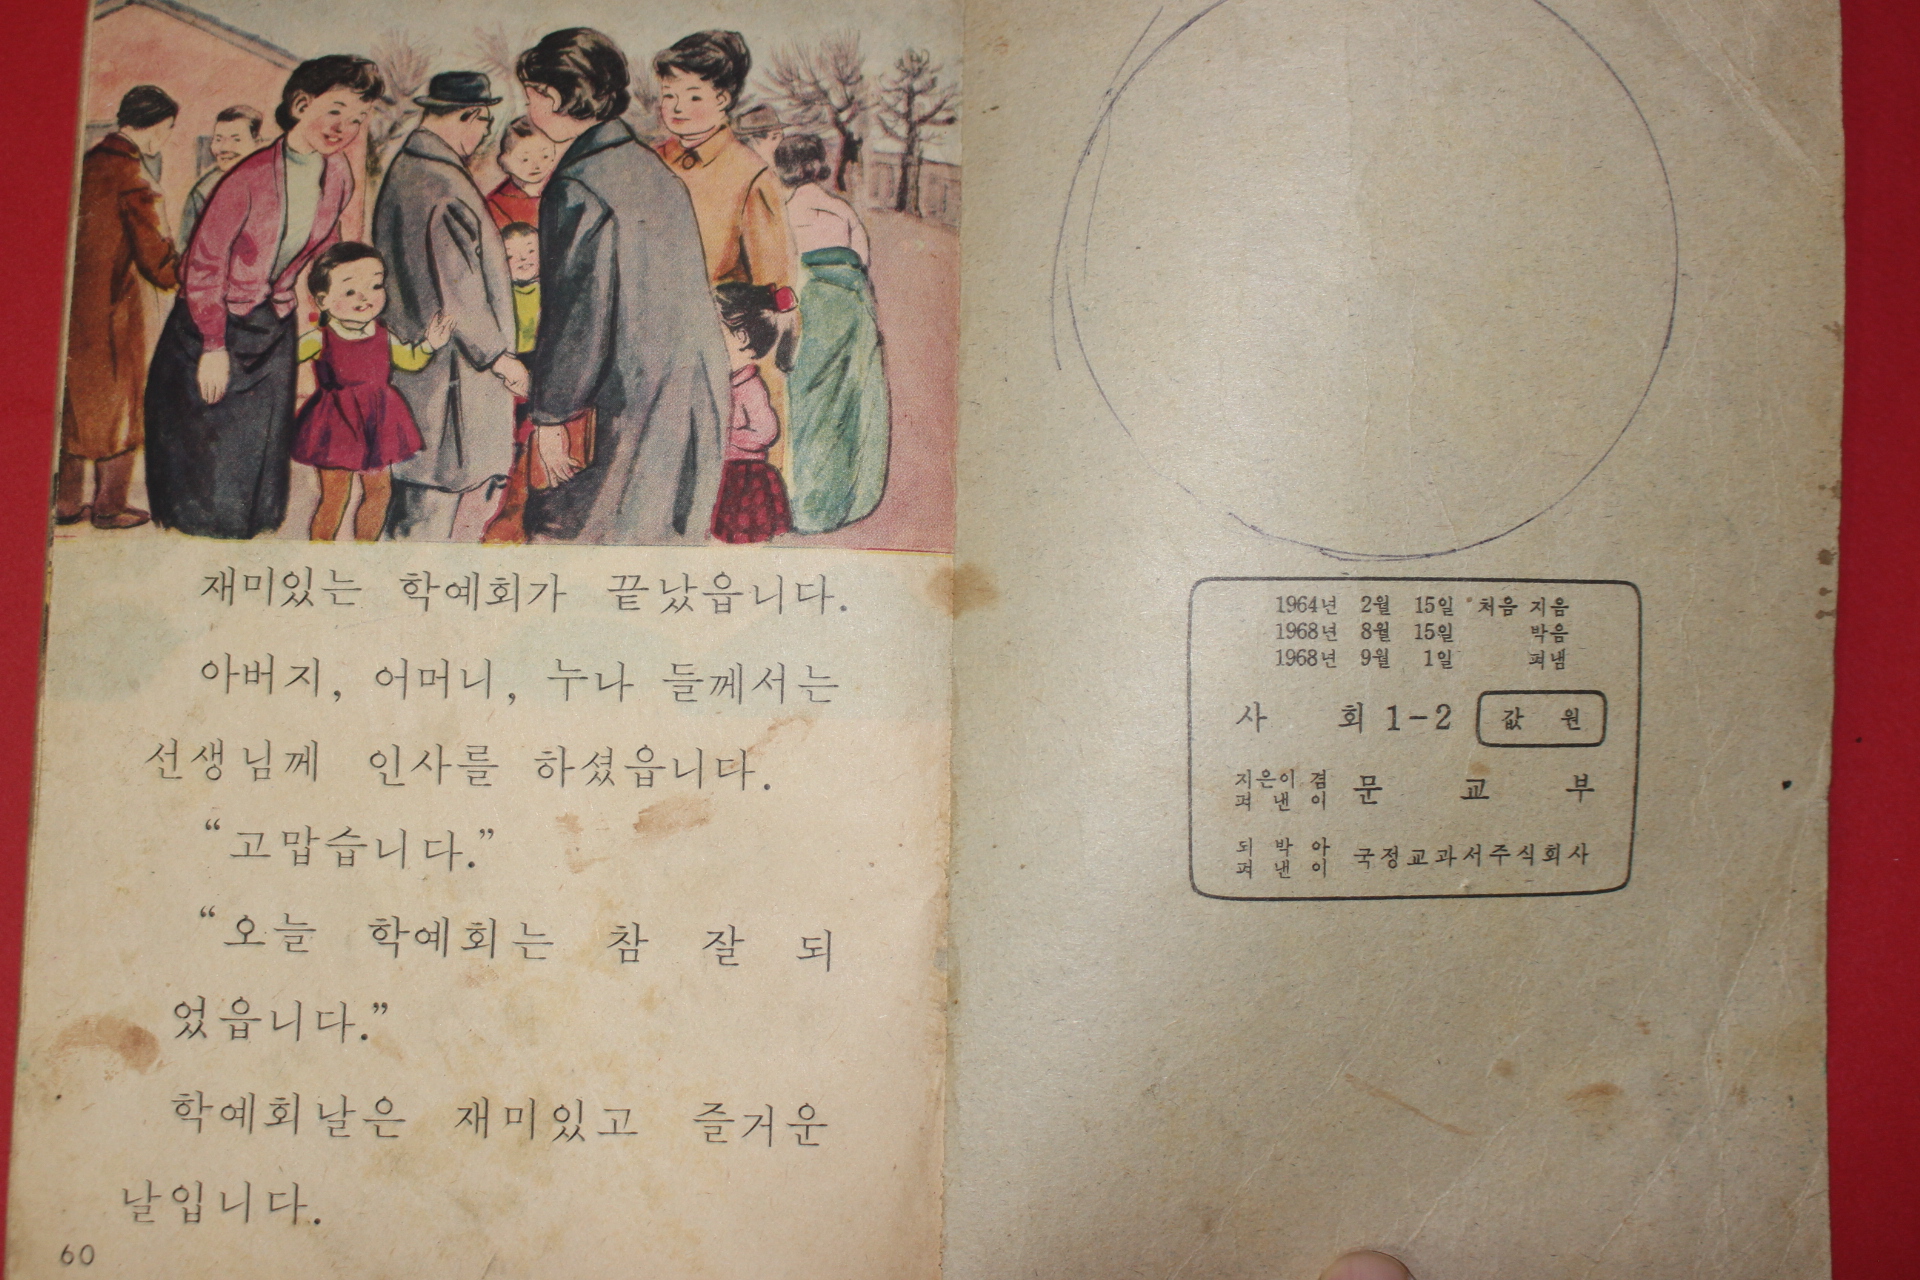 재미있는 학예회가 끝났읍니다.
아버지, 어머니, 누나 들께서는
선생님께 인사를 하셨읍니다.
“고맙습니다.”
“오늘 학예회는 참 잘 되
었읍니다.”
학예회날은 재미있고 즐거운
날입니다.
60
1964년 2월 15일 처음 지음
1968년 8월 15일 박음
1968년 9월 1일 펴냄
사 회 1-2 값 원
지은이 겸 펴 낸 이 문 교 부
되 박 아 펴 낸 이 국정교과서주식회사